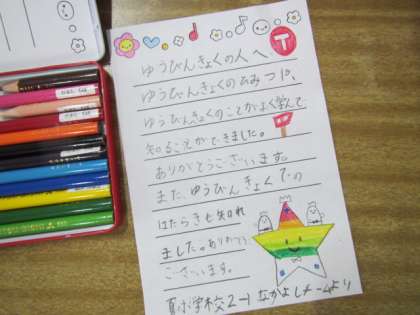 ゆうびんきょくの人へ
ゆうびんきょくのひみつや、
ゆうびんきょくのことがよく学んで
知ることができました。
ありがとうございます。
また、ゆうびんきょくでの
はたらきも知れ
ました。ありがとう
ございます。
学校2-1 なかよしチームより